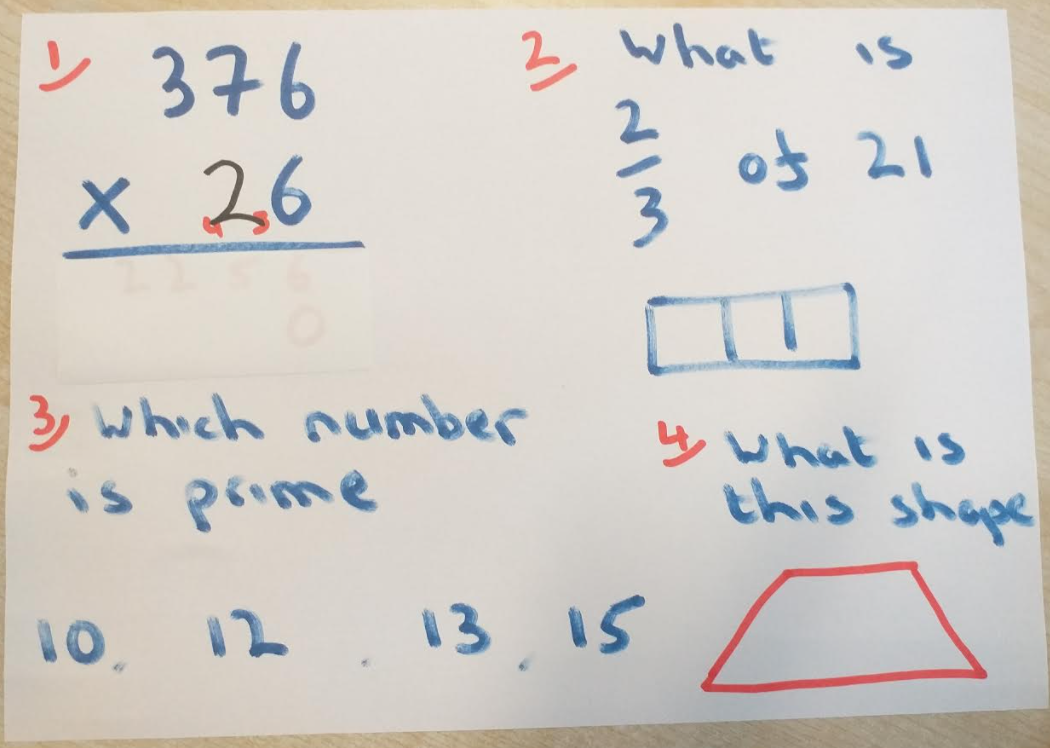 1
376
× 26
4 3
2256
0
2 What is
2/3 of 21
3 Which number
is prime
10. 12 . 13 . 15
4 What is
this shape